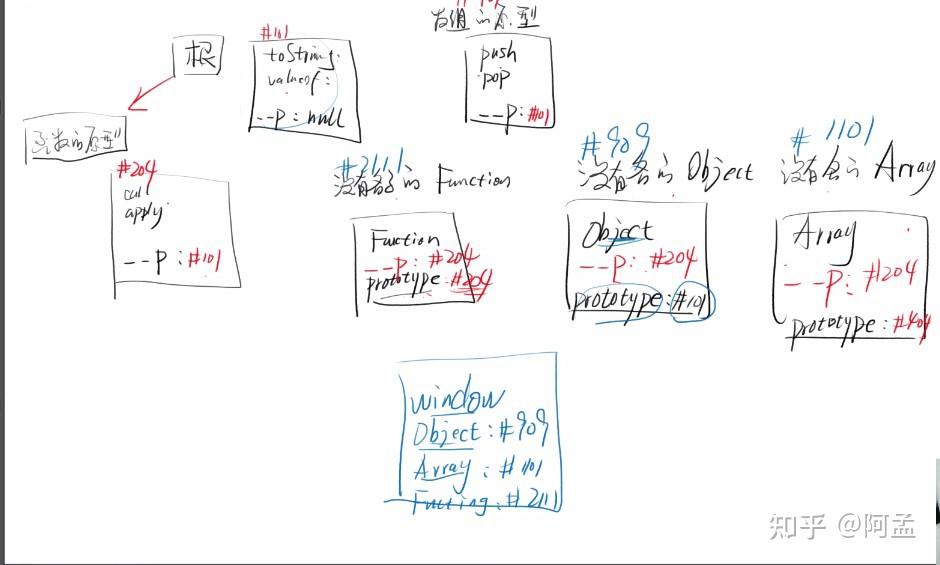 根
#101
toString:
valueof:
--P: null
数组的原型
push
pop
--P: #101
函数的原型
#204
call
apply
--P: #101
#2111
没有名的 Function
Function
--P: #204
prototype #204
#909
没有名的 Object
Object
--P: #204
prototype: #101
# 1101
没有名の Array
Array
--P: #204
prototype: #404
window
Object: #909
Array: #1101
#2111
知乎 @阿孟